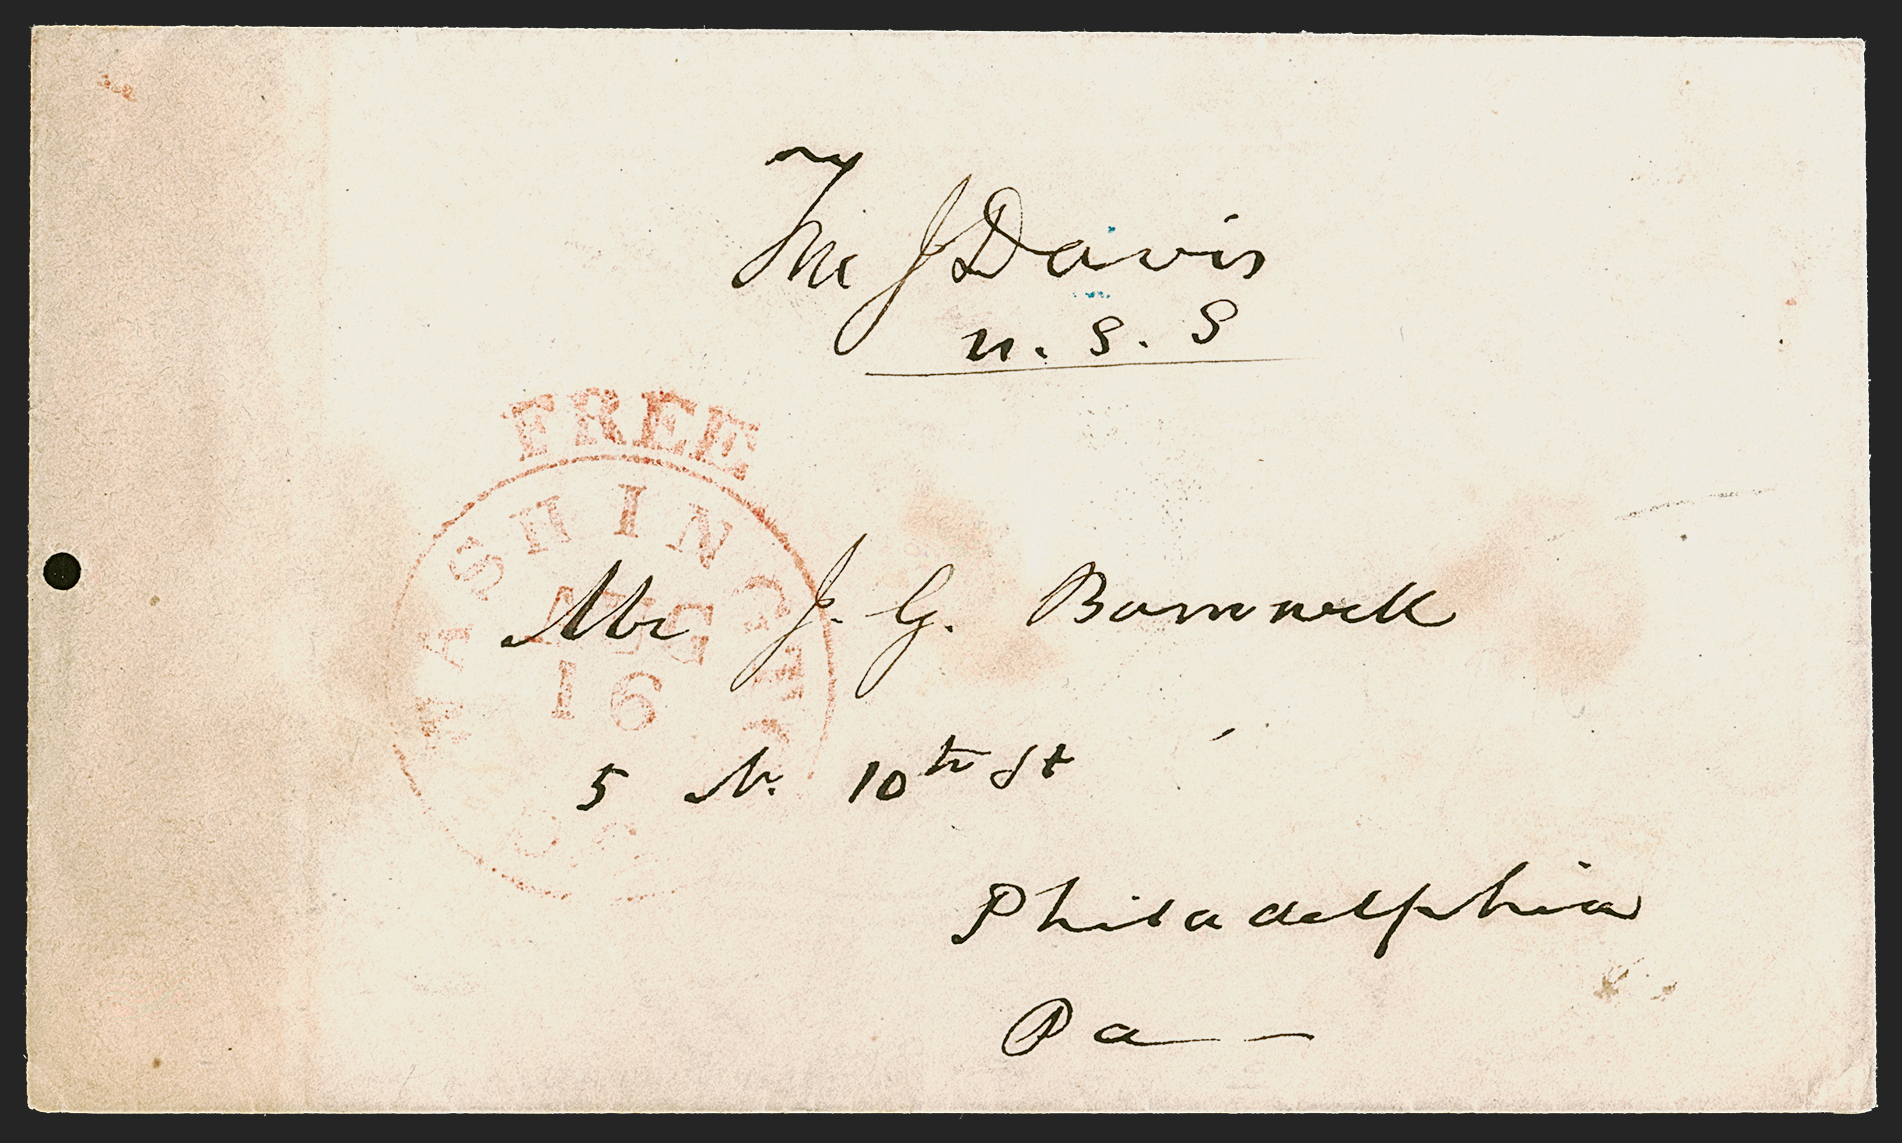 J Davis
U. S. S
FREE
WASHINGTO
AUG
16
Mr J. G. Barnwell
5 N. 10th St
Philadelphia
Pa